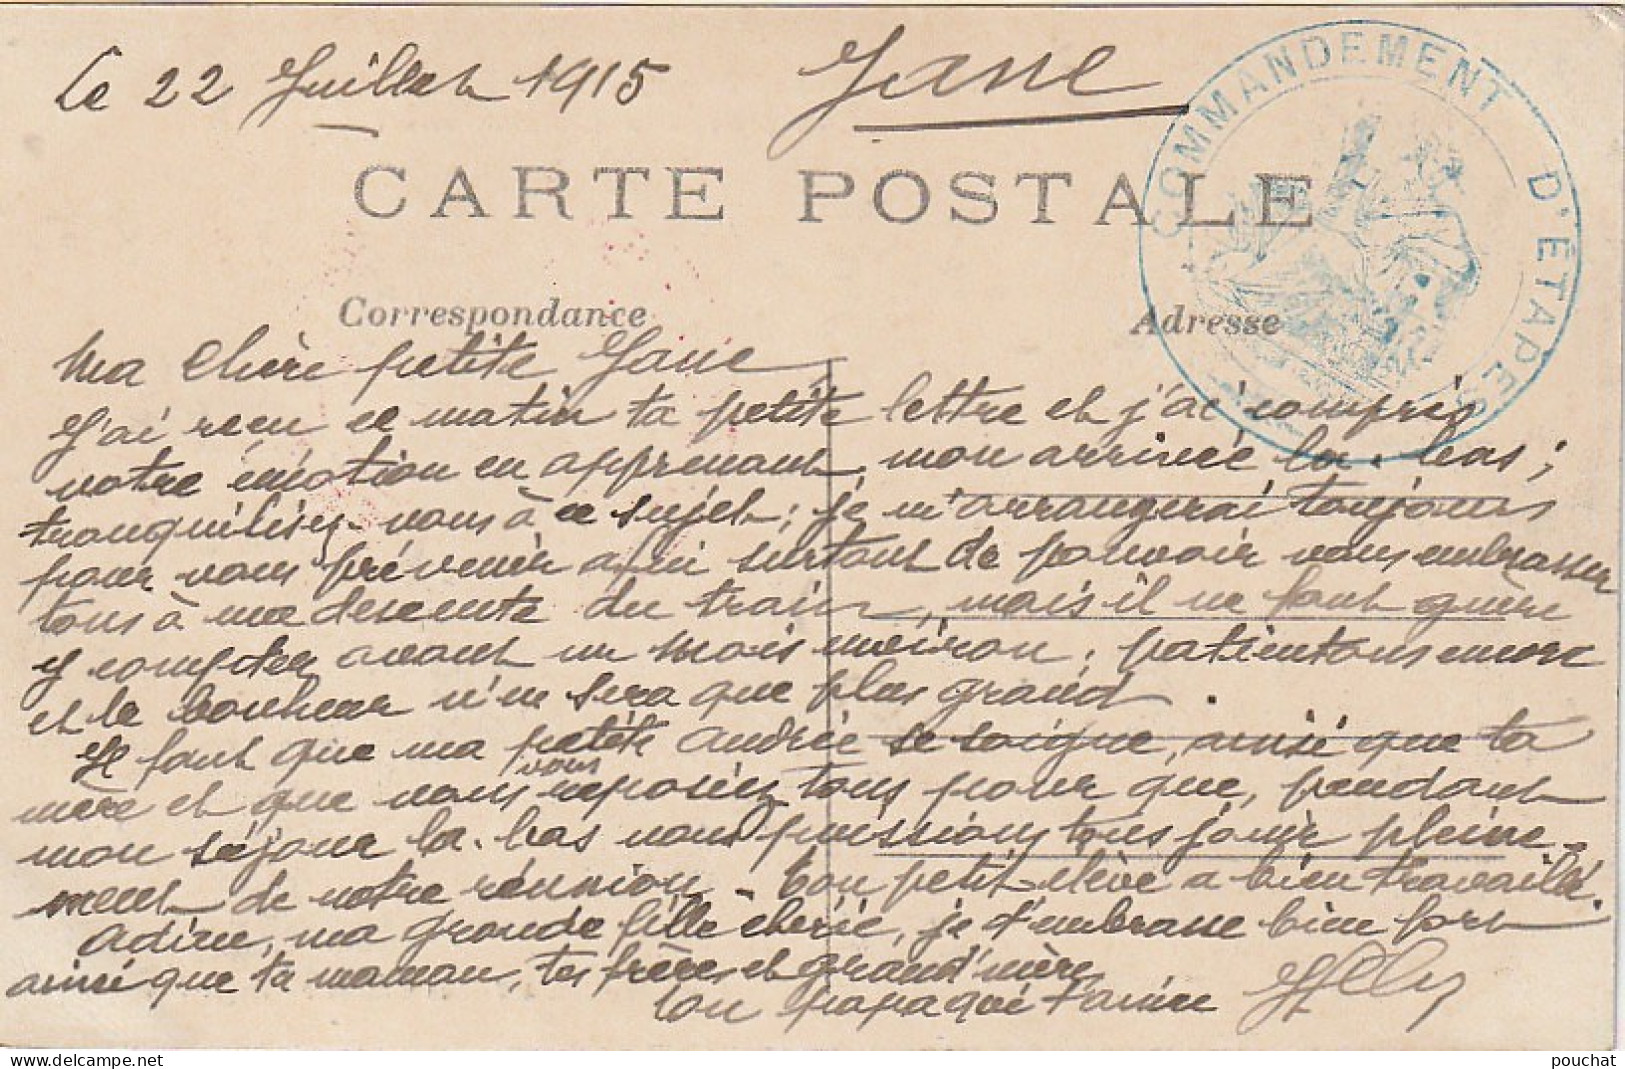 Le 22 Juillet 1915
Jane
COMMANDEMENT D'ÉTAPES
CARTE POSTALE
Correspondance
Adresse
Ma Chère petite Jane
J'ai recu ce matin ta petite lettre et j'ai compris
votre émotion en apprenant mon arrivée la-bas ;
tranquilisez-vous à ce sujet ; je m'arrangerai toujours
pour vous prévenir afin surtout de pouvoir vous embrasser
tous à ma descente du train, mais il ne faut guère
y compter avant un mois environ ; patientons encore
et le bonheur n'en sera que plus grand.
Il faut que ma petite Andrée se soigne, ainsi que ta
mère et que vous vous reposiez tous pour que, pendant
mon séjour la-bas nous puissions tous jouir pleine-
ment de notre réunion. Ton petit élève a bien travaillé.
Adieu, ma grande fille chérie, je t'embrasse bien fort
ainsi que ta maman, tes frères et grand'mère,
Ton papa qui t'aime
pouchat